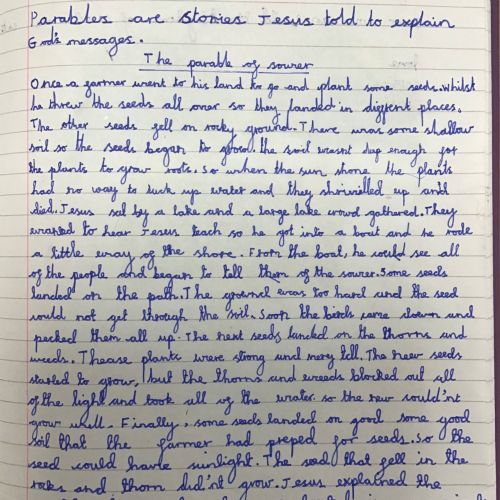 Parables are stories Jesus told to explain
God's messages.
The parable of sower
Once a farmer went to his land to go and plant some seeds. Whilst
he threw the seeds all over so they landed in different places.
The other seeds fell on rocky ground. There was some shallow
soil so the seeds began to grow. the soil wasnt dup enough for
the plants to grow roots. So when the sun shone the plants
had no way to suck up water and they shrivelled up and
died. Jesus sat by a lake and a large lake crowd gathered. They
wanted to hear Jesus teach so he got into a boat and he rode
a little way of the shore. From the boat, he could see all
of the people and began to tell them of the sower. Some seeds
landed on the path. The ground was too hard and the seed
could not get through the soil. Soon the birds came down and
pecked them all up. The next seeds landed on the thorns and
weeds. Thease plants were strong and very tall. The new seeds
started to grow, but the thorns and weeds blocked out all
of the light and took all of the water so the new could'nt
grow well. Finally, some seeds landed on good some good
soil that the farmer had preped for seeds. So the
seed could have sunlight. The seed that fell in the
rocks and thorn did'nt grow. Jesus explained the